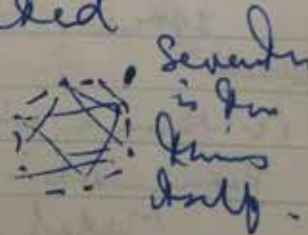 ked
Seventh
is the
thing
itself.